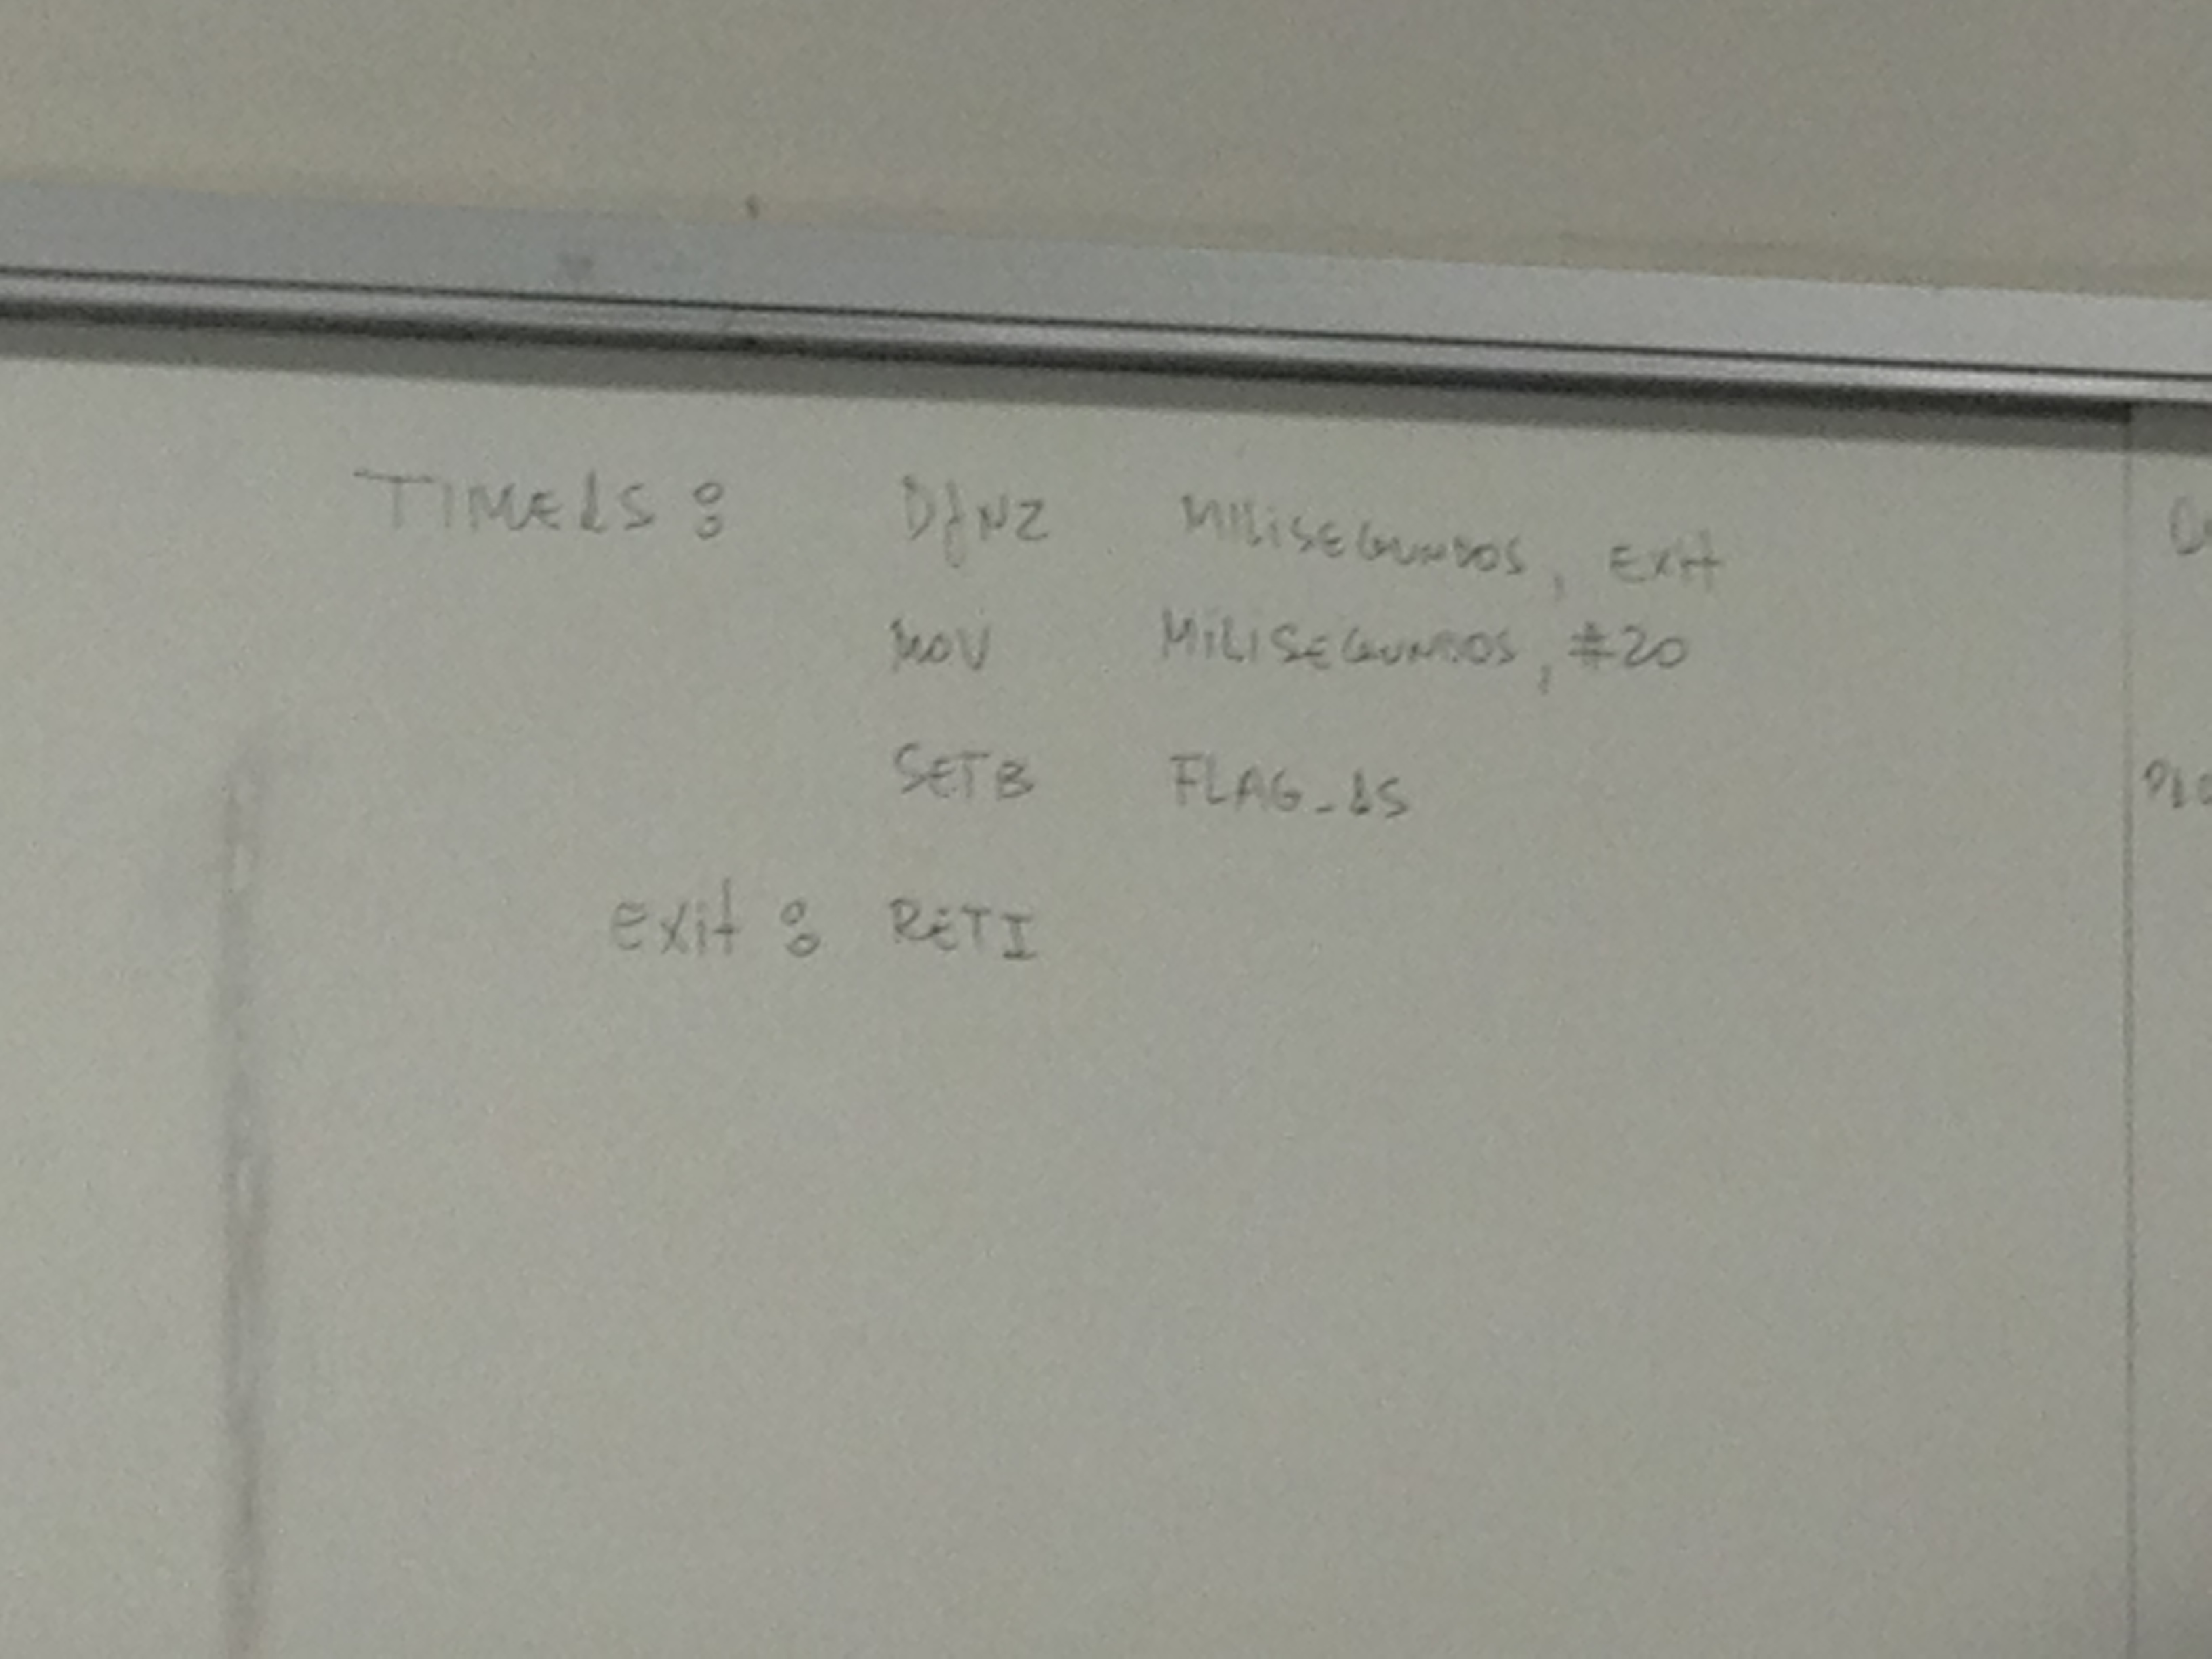 TIME1S: DJNZ MILISEGUNDOS, Exit
MOV MILISEGUNDOS, #20
SETB FLAG_1S
exit: RETI